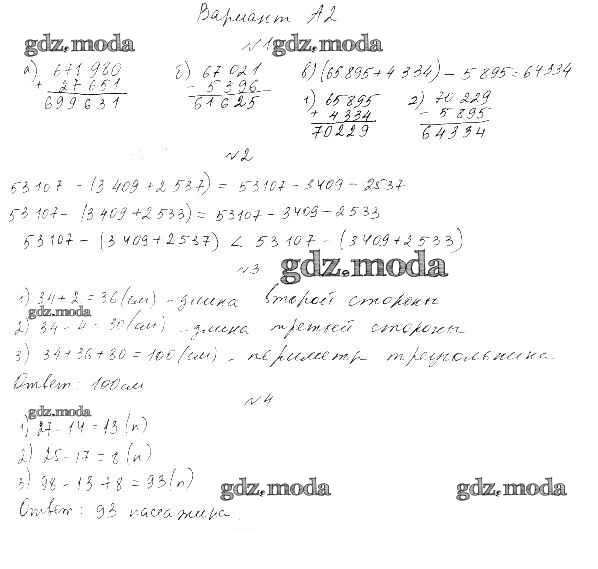 Вариант А2
gdz.moda №1 gdz.moda
а) 671 980 б) 67 021 в) (65 895 + 4 334) - 5 895 = 64334
+ 27 651 - 5 396 1) 65 895 2) 70 229
699 631 61 625 + 4 334 - 5 895
70229 64334
№2
53107 - (3 409 + 2 537) = 53107 - 3409 - 2537
53107 - (3 409 + 2533) = 53107 - 3409 - 2533
53107 - (3 409 + 2537) < 53 107 - (3409 + 2533)
№3 gdz.moda
1) 34 + 2 = 36 (см) - длина второй стороны
gdz.moda
2) 34 - 4 = 30 (см) - длина третьей стороны
3) 34 + 36 + 30 = 100 (см) - периметр треугольника
Ответ: 100 см
№4
gdz.moda
1) 27 - 14 = 13 (п)
2) 25 - 17 = 8 (п)
3) 98 - 13 + 8 = 93 (п)
gdz.moda gdz.moda
Ответ: 93 пассажира.